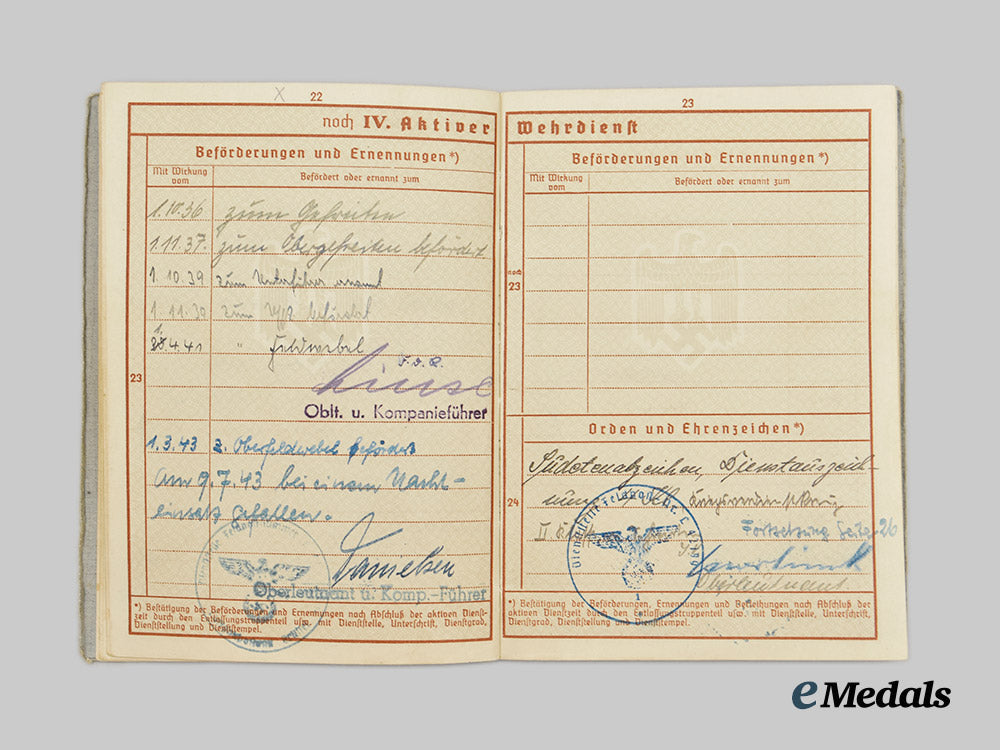 X
22
noch IV. Aktiver
Beförderungen und Ernennungen*)
Mit Wirkung vom
Befördert oder ernannt zum
1.10.36 zum Gefreiten
1.11.37. zum Obergefreiten befördert
1.10.39 zum Unterführer ernannt
1.11.39 zum befördert
1.
4.41 " Feldwebel
23
F.d.R.
Oblt. u. Kompanieführer
1.3.43 z. Oberfeldwebel befördert
Am 9.7.43 bei einem Nacht-
einsatz gefallen.
Oberleutnant u. Komp.-Führer
*) Bestätigung der Beförderungen und Ernennungen nach Abschluß der aktiven Dienst-
zeit durch den Entlassungstruppenteil usw. mit Dienststelle, Unterschrift, Dienstgrad,
Dienststellung und Dienststempel.
23
Wehrdienst
Beförderungen und Ernennungen*)
Mit Wirkung vom
Befördert oder ernannt zum
noch
23
Orden und Ehrenzeichen*)
24
Sudetenabzeichen, Dienstauszeich-
nung
II. Klasse Fortsetzung Seite 26
Oberleutnant
Dienststelle Feldpost Nr. L
*) Bestätigung der Beförderungen, Ernennungen und Verleihungen nach Abschluß der
aktiven Dienstzeit durch den Entlassungstruppenteil usw. mit Dienststelle, Unterschrift,
Dienstgrad, Dienststellung und Dienststempel.
eMedals